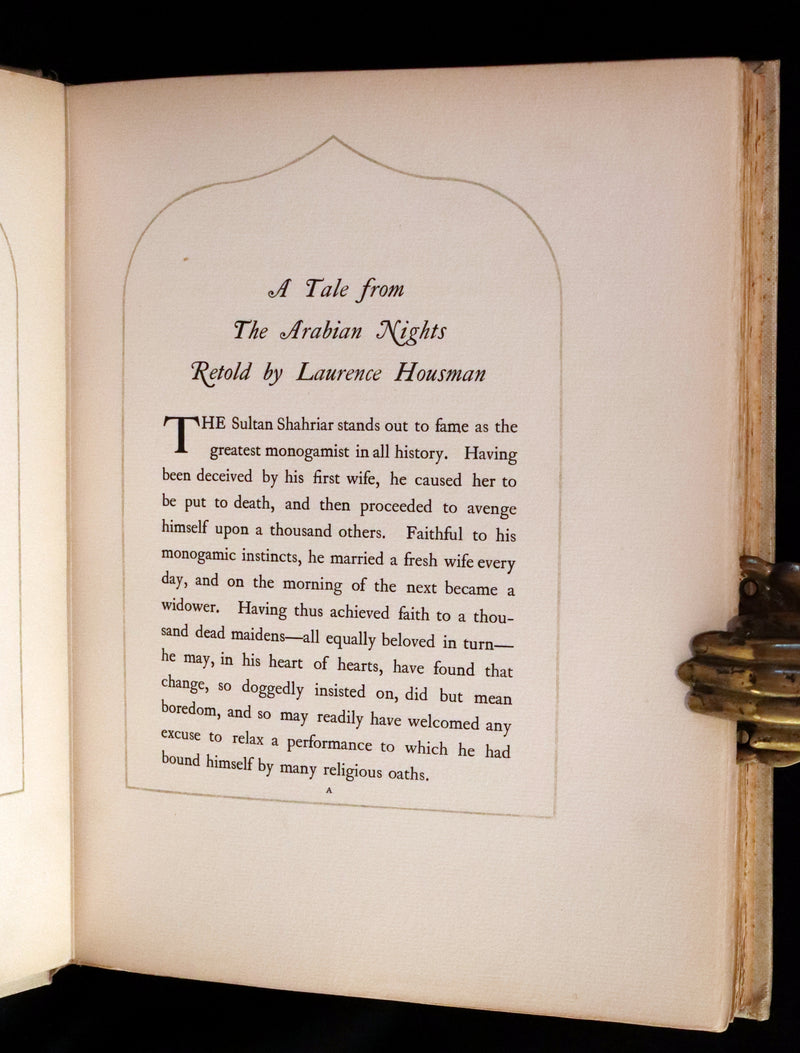 A Tale from
The Arabian Nights
Retold by Laurence Housman
THE Sultan Shahriar stands out to fame as the
greatest monogamist in all history. Having
been deceived by his first wife, he caused her to
be put to death, and then proceeded to avenge
himself upon a thousand others. Faithful to his
monogamic instincts, he married a fresh wife every
day, and on the morning of the next became a
widower. Having thus achieved faith to a thou-
sand dead maidens—all equally beloved in turn—
he may, in his heart of hearts, have found that
change, so doggedly insisted on, did but mean
boredom, and so may readily have welcomed any
excuse to relax a performance to which he had
bound himself by many religious oaths.
A